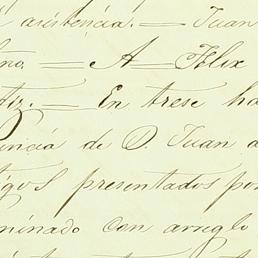 asistencia. = Juan
no = A = Félix
tiz. = En trese ha
incia de D. Juan a
igos presentados por
minado con arreglo